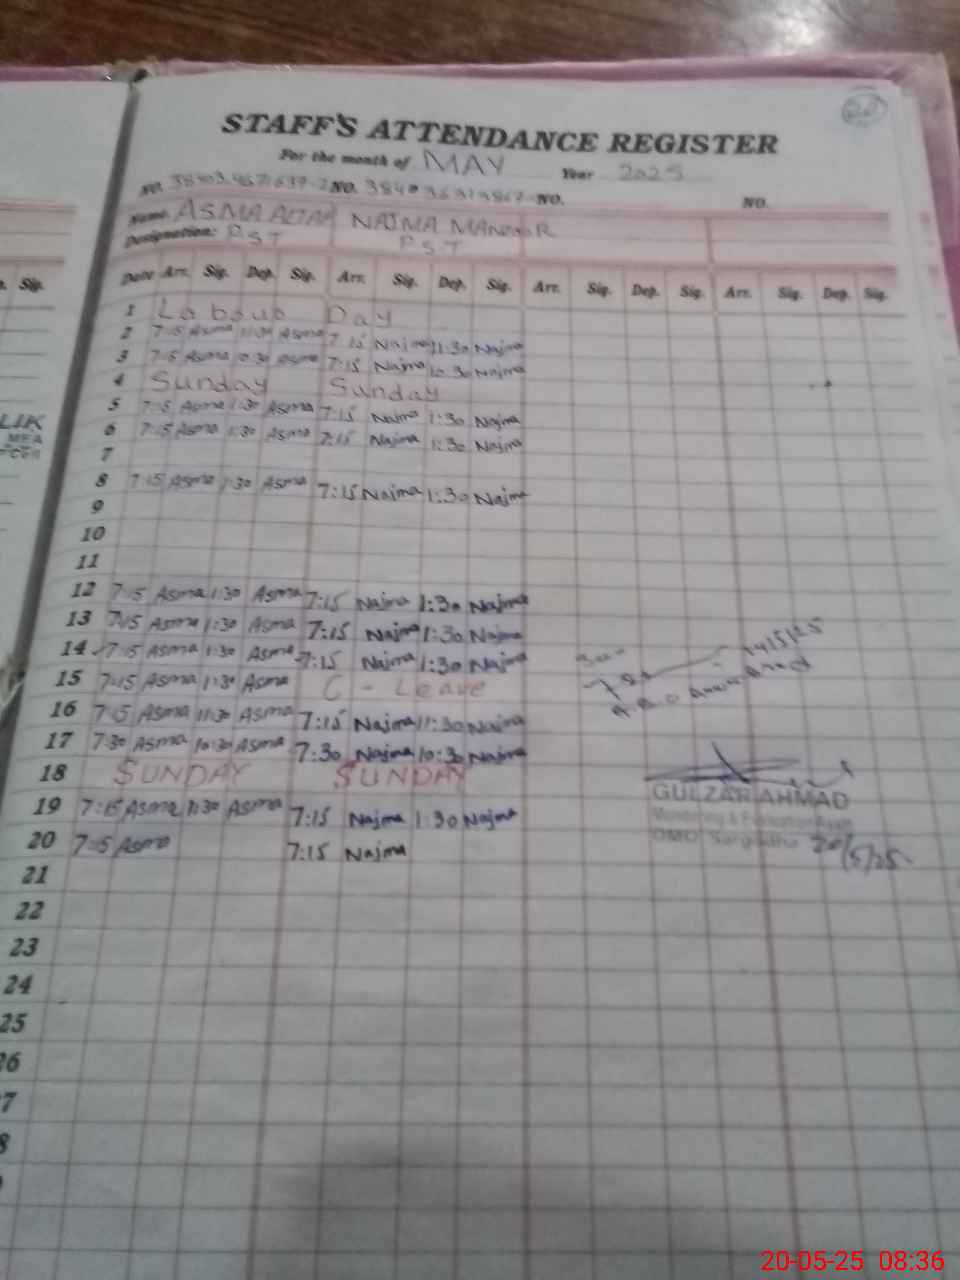 STAFF'S ATTENDANCE REGISTER
For the month of MAY Year 2025
NO. NO. NO. NO.
Name: ASMA ALTAF NAJMA MANZOOR
Designation: P.S.T P.S.T
Date Arr. Sig. Dep. Sig. Arr. Sig. Dep. Sig. Arr. Sig. Dep. Sig. Arr. Sig. Dep. Sig.
Sig.
1 Labour Day
2 7:15 Asma 11:30 Asma 7:15 Najma 11:30 Najma
3 7:15 Asma 10:30 Asma 7:15 Najma 10:30 Najma
4 Sunday Sunday
5 7:15 Asma 1:30 Asma 7:15 Najma 1:30 Najma
6 7:15 Asma 1:30 Asma 7:15 Najma 1:30 Najma
7
8 7:15 Asma 1:30 Asma 7:15 Najma 1:30 Najma
9
10
11
12 7:15 Asma 1:30 Asma 7:15 Najma 1:30 Najma
13 7:15 Asma 1:30 Asma 7:15 Najma 1:30 Najma
14 7:15 Asma 1:30 Asma 7:15 Najma 1:30 Najma
14/5/25
15 7:15 Asma 1:30 Asma C - Leave
16 7:15 Asma 11:30 Asma 7:15 Najma 11:30 Najma
17 7:30 Asma 10:30 Asma 7:30 Najma 10:30 Najma
18 SUNDAY SUNDAY
GULZAR AHMAD
19 7:15 Asma 11:30 Asma 7:15 Najma 1:30 Najma
DMO Sargodha 20/5/25
20 7:15 Asma 7:15 Najma
21
22
23
24
25
26
7
8
LIK
MEA
20-05-25 08:36